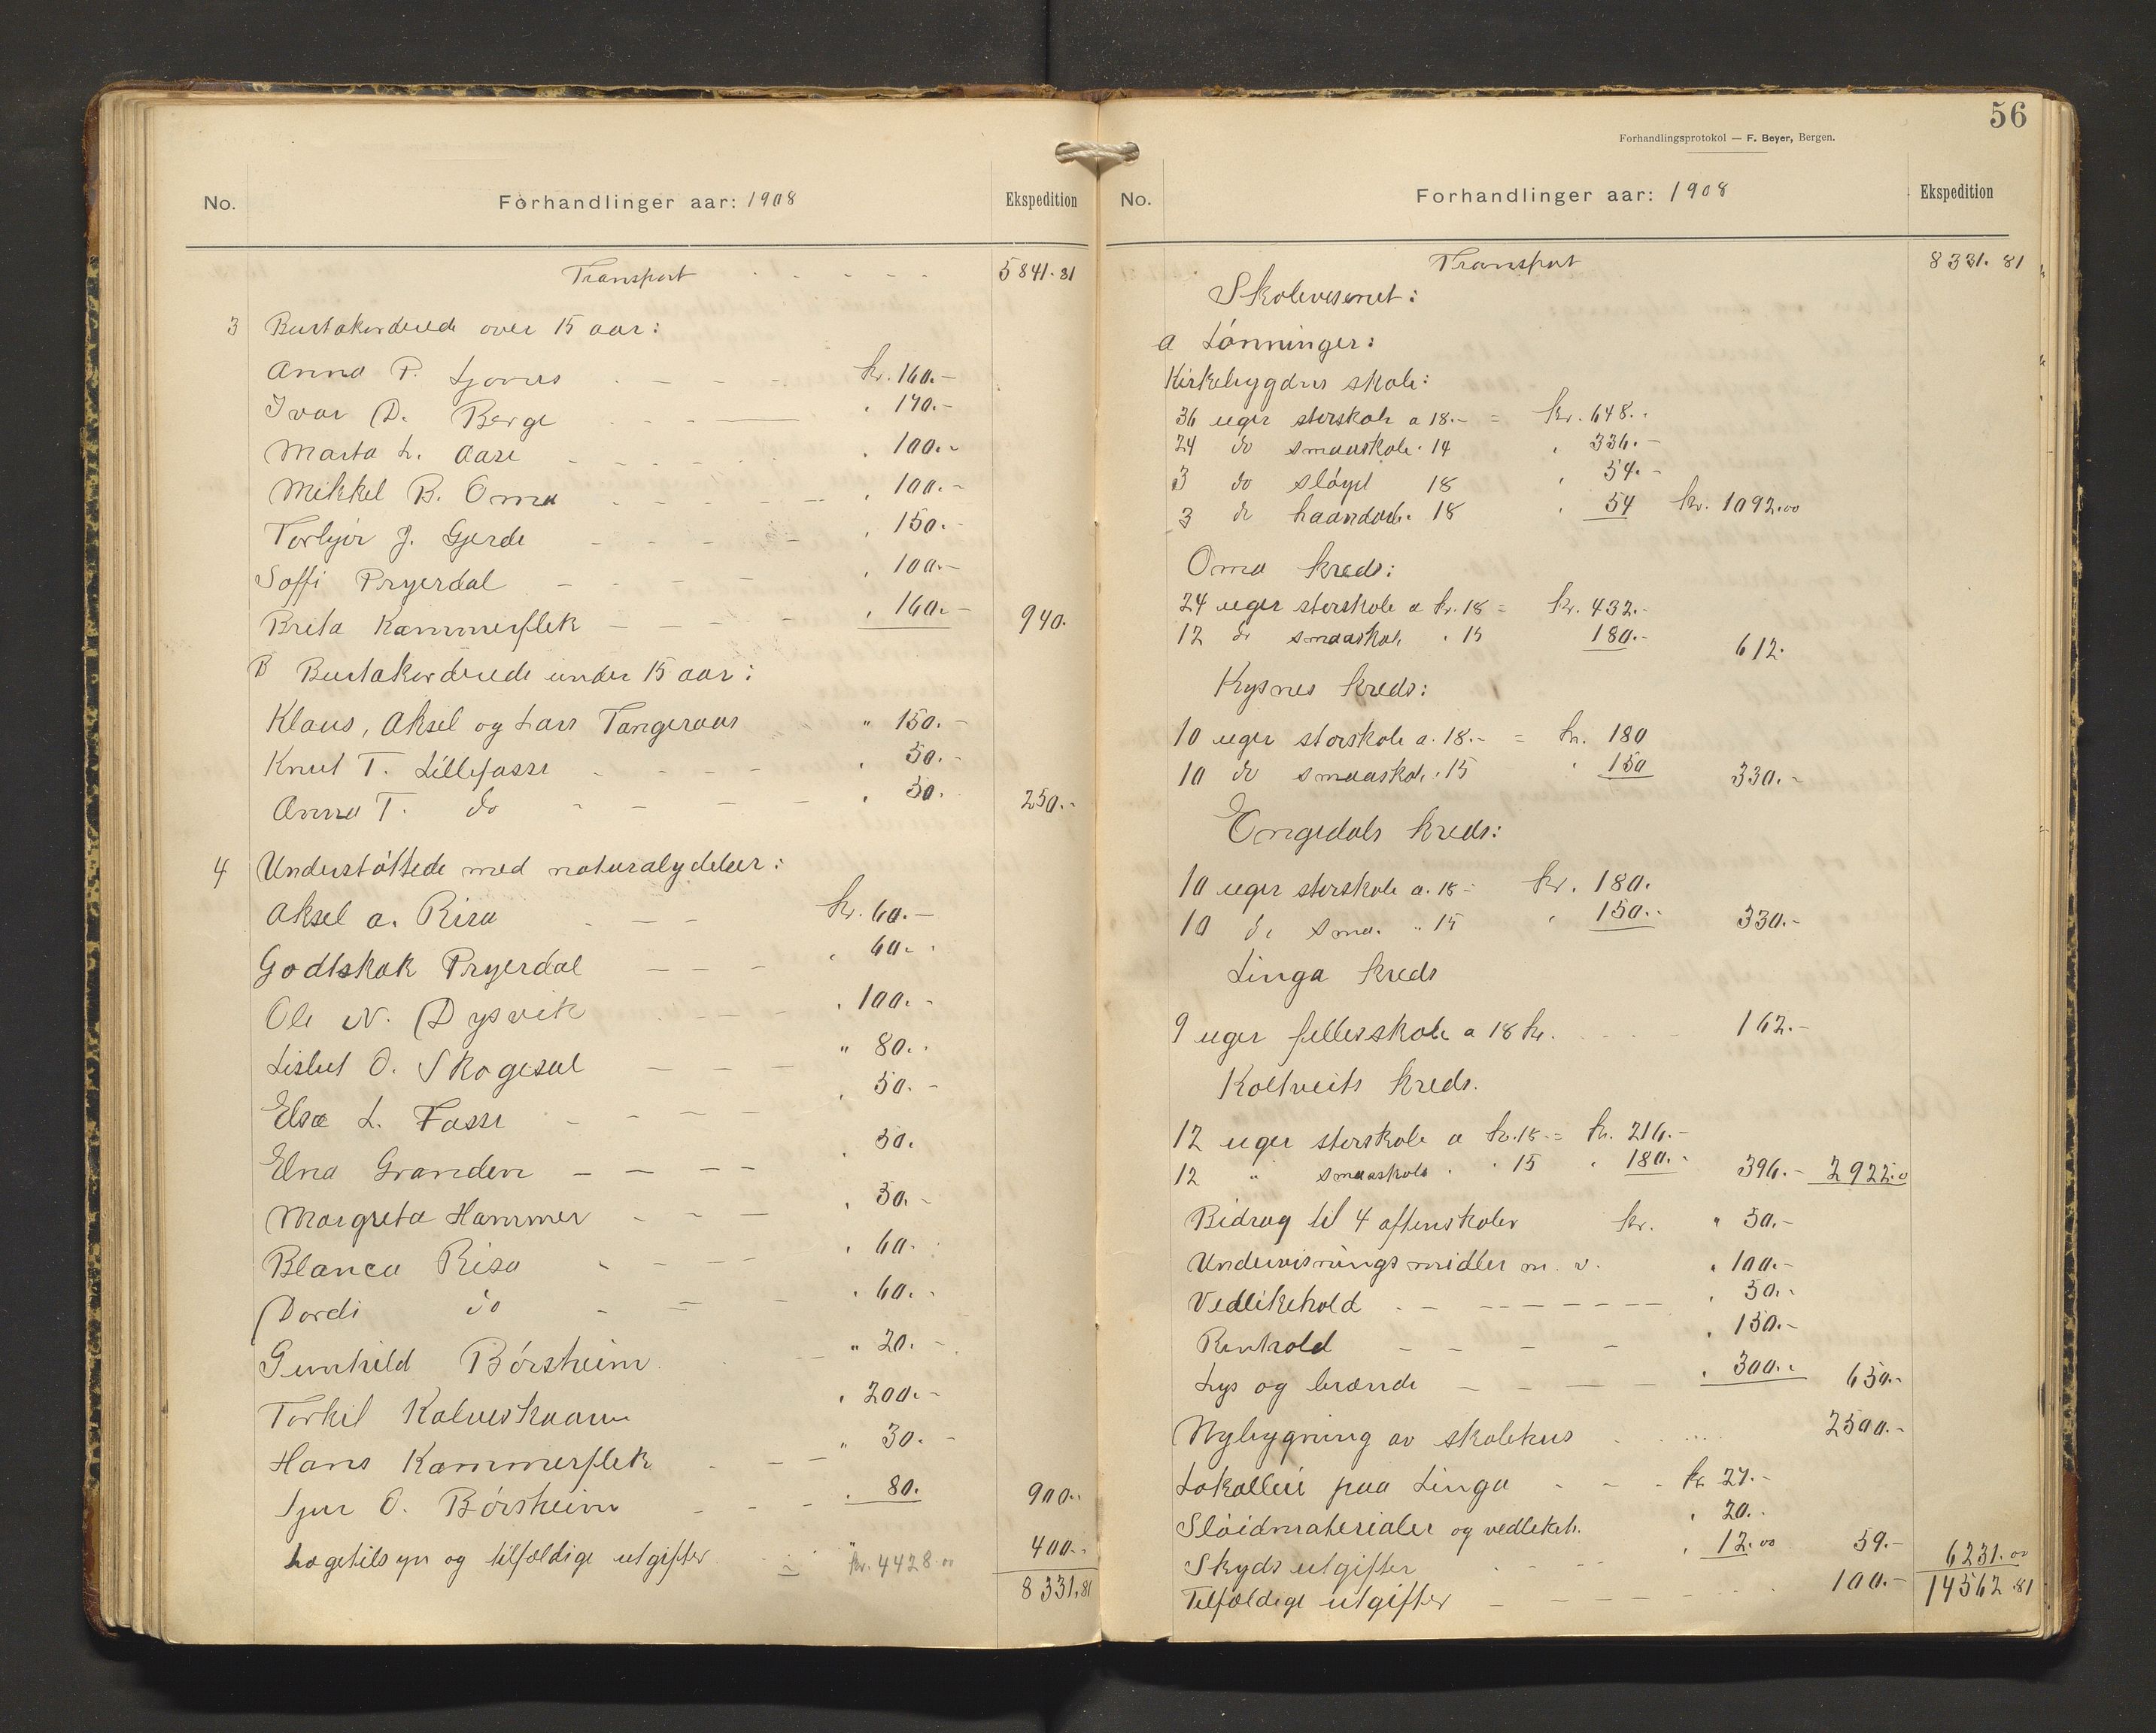 No. Forhandlinger aar: 1908 Ekspedition
Transport 5841.81
3 Bortakorderede over 15 aar:
Anna P. kr. 160.-
Ivar D. Berge " 170.-
Marta L. Aase " 100.-
Mikkel B. Oma " 100.-
Torbjør J. Gjerde " 150.-
Soffi Pryerdal " 100.-
Breta Kammerflek " 160.- 940.
B Bortakorderede under 15 aar:
Klaus, Aksel og Lars Tangeraas " 150.-
Knut T. Lillefosse " 50.-
Anna T. do " 50. 250.-
4 Understøttede med naturalydelser:
Aksel A. Risa kr. 60.-
Godtskak Pryerdal " 60.-
Ole N. Dysvik " 100.-
Lisbet O. Skogesal " 80.-
Elsa L. Fosse " 50.-
Elna Granden " 50.
Margreta Hammer " 50.-
Blanca Risa " 60.
Dordi do " 60.-
Gunhild Børsheim " 20.-
Torkil Kalveskaam " 200.-
Hans Kammerflek " 30.-
Sjur O. Børsheim " 80. 900.-
Lægetilsyn og tilfældige utgifter kr. 4428.00 400.-
8331.81
56
Forhandlingsprotokol — F. Beyer, Bergen.
No. Forhandlinger aar: 1908 Ekspedition
Transport 8331.81
Skolevesenet:
a Lønninger:
Kirkebygdens skole:
36 uger storskole a 18.- = kr. 648.-
24 do smaaskole " 14 " 336.-
3 do sløyd 18 " 54.-
3 do haandarb. 18 " 54 kr. 1092.00
Oma kreds:
24 uger storskole a kr. 18 = kr. 432.-
12 do smaaskole " 15 180.- 612.
Kysnes kreds:
10 uger storskole a. 18.- = kr. 180
10 do smaaskole " 15 " 150 330.-
Engedals kreds:
10 uger storskole a. 18 - kr. 180.
10 do smaa. " 15 " 150.- 330.-
Linga kreds
9 uger fellesskole a 18 kr. 162.-
Koltveits kreds.
12 uger storskole a kr. 18.- = kr. 216.-
12 " smaaskole " 15 " 180.- 396.- 2922.0
Bidrag til 4 aftenskoler kr. " 50.-
Undervisningsmidler m. v. " 100.-
Vedlikehold " 50.-
Renhold " 150.-
Lys og brænde " 300.- 650.-
Nybygning av skolehus 2500.-
Lokalleie paa Linga kr. 27.-
Sløidmaterialer og vedlikeh. " 20.-
Skydsutgifter " 12.00 59.- 6231.00
Tilfældige utgifter 100.- 14562.81